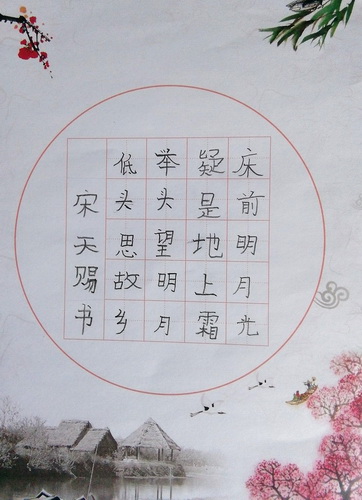 床前明月光
疑是地上霜
举头望明月
低头思故乡
宋天赐书